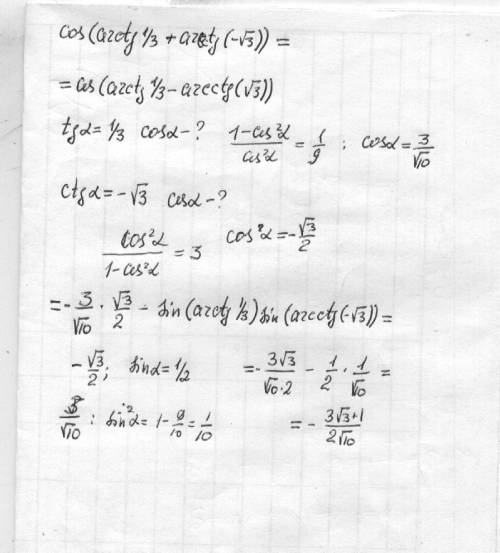 cos(arctg 1/3 + arcctg(-√3)) =
= cos(arctg 1/3 - arcctg(√3))
tgα = 1/3 cosα - ? (1-cos²α)/cos²α = 1/9 ; cosα = 3/√10
ctgα = -√3 cosα - ?
cos²α/(1-cos²α) = 3 cos²α = -√3/2
= -3/√10 · √3/2 - sin(arctg 1/3) sin(arcctg(-√3)) =
-√3/2 ; sinα = 1/2 = -3√3/(√10·2) - 1/2 · 1/√10 =
3/√10 : sin²α = 1 - 9/10 = 1/10 = -(3√3+1)/(2√10)